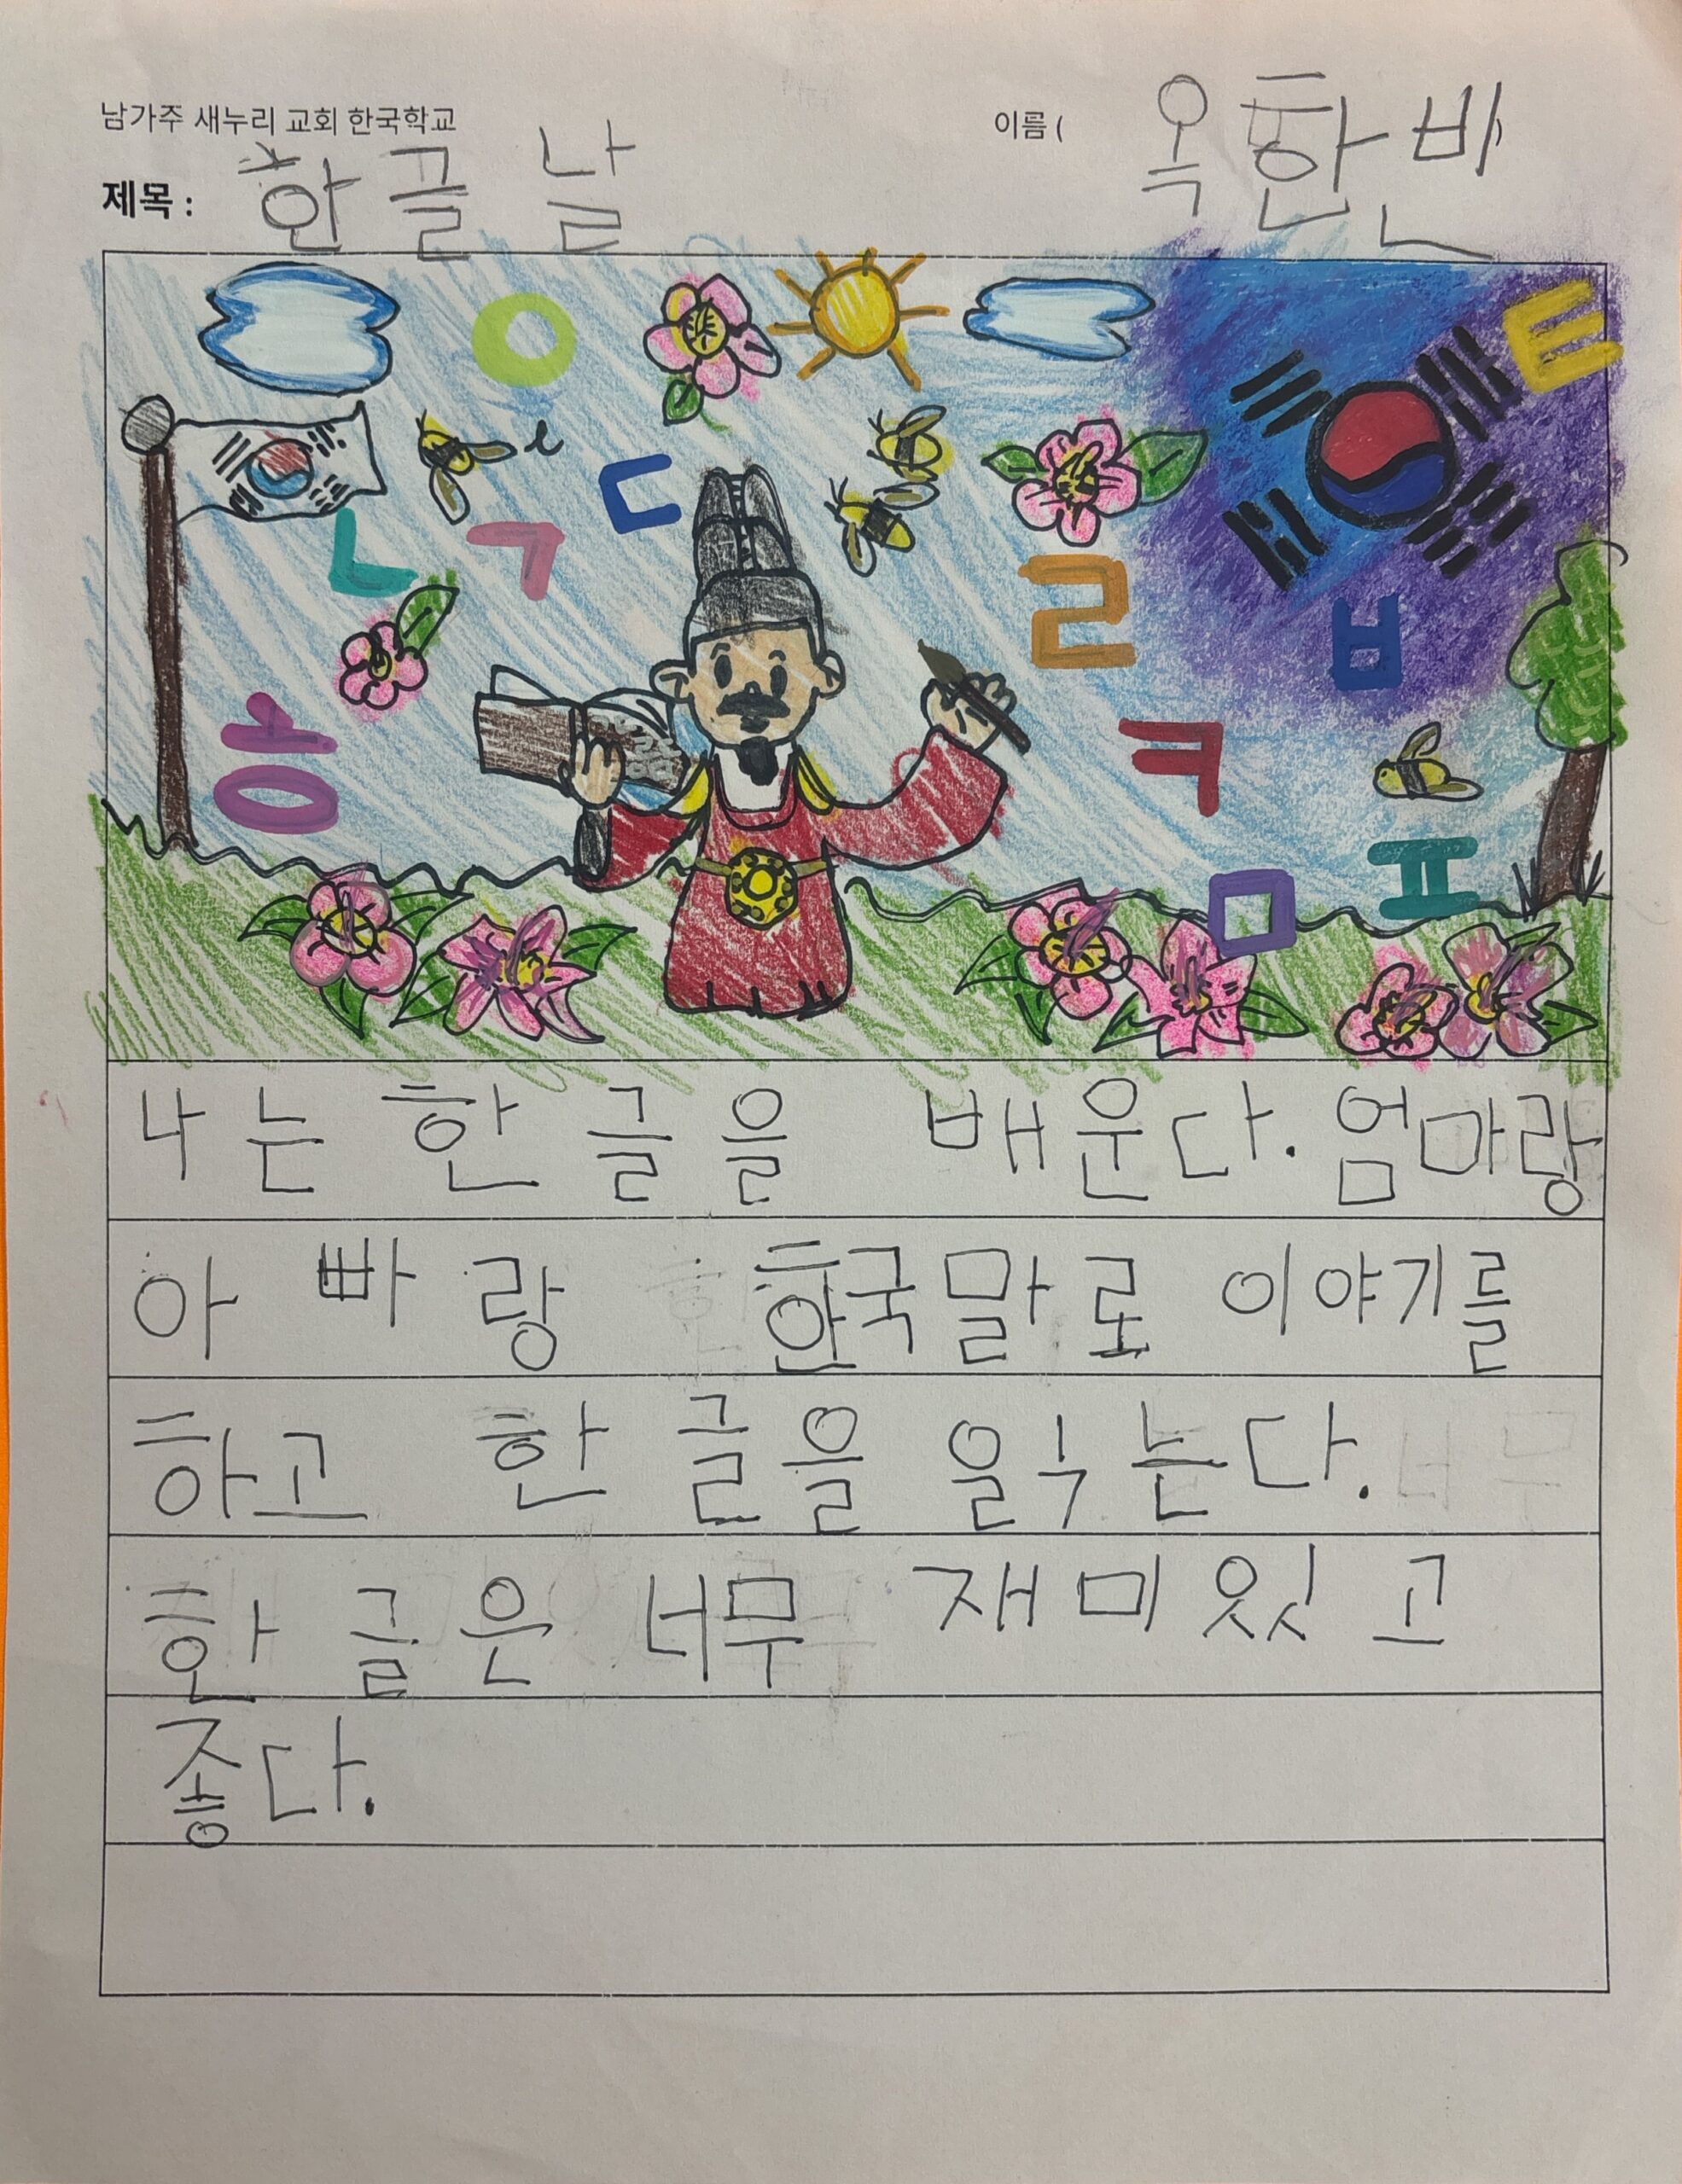 남가주 새누리 교회 한국학교
이름 ( 옥한빈 )
제목 : 한글날
ㅇ
ㅌ
ㄷ
ㄴ ㄱ
ㄹ
ㅂ
하
ㅋ
ㅍ
ㅁ
나는 한글을 배운다. 엄마랑
아빠랑 한국말로 이야기를
하고 한글을 읽는다.
한글은 너무 재미있고
좋다.